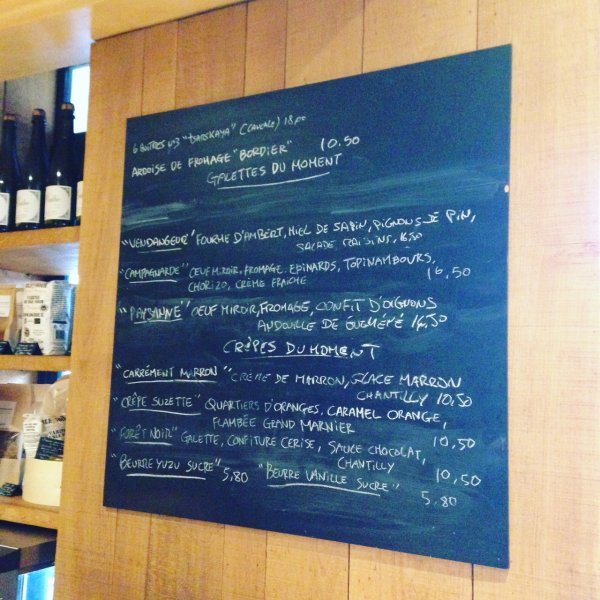 6 HUÎTRES N°3 "TSARSKAYA" (CANCALE) 18,00
ARDOISE DE FROMAGE "BORDIER" 10.50
GALETTES DU MOMENT
"VENDANGEUR" FOURME D'AMBERT, MIEL DE SAPIN, PIGNONS DE PIN,
SALADE RAISINS,
"CAMPAGNARDE" OEUF MIROIR, FROMAGE, EPINARDS, TOPINAMBOURS,
CHORIZO, CRÈME FRAICHE 16,50
"PAYSANNE" OEUF MIROIR, FROMAGE, CONFIT D'OIGNONS
ANDOUILLE DE GUEMÉNÉ 14,50
CRÊPES DU MOMENT
"CARRÉMENT MARRON" CRÈME DE MARRON, GLACE MARRON
CHANTILLY 10,50
"CRÊPE SUZETTE" QUARTIERS D'ORANGES, CARAMEL ORANGE,
FLAMBÉE GRAND MARNIER 10,50
"FORÊT NOIR" GALETTE, CONFITURE CERISE, SAUCE CHOCOLAT,
CHANTILLY 10,50
"BEURRE YUZU SUCRE" 5,80 "BEURRE VANILLE SUCRE" 5,80